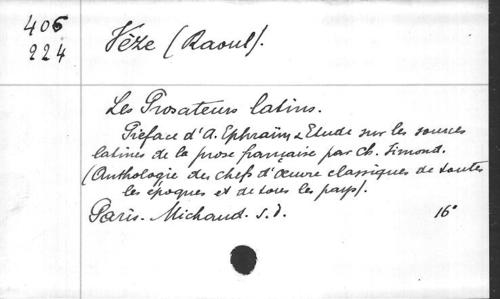 406
224
Vèze (Raoul).
Les Prosateurs latins.
Préface d'A. Ephraïm & Etude sur les sources
latines de la prose française par Ch. Simond.
(Anthologie des chefs d'œuvre classiques de toutes
les époques et de tous les pays).
Paris. Michaud. s. d. 16°